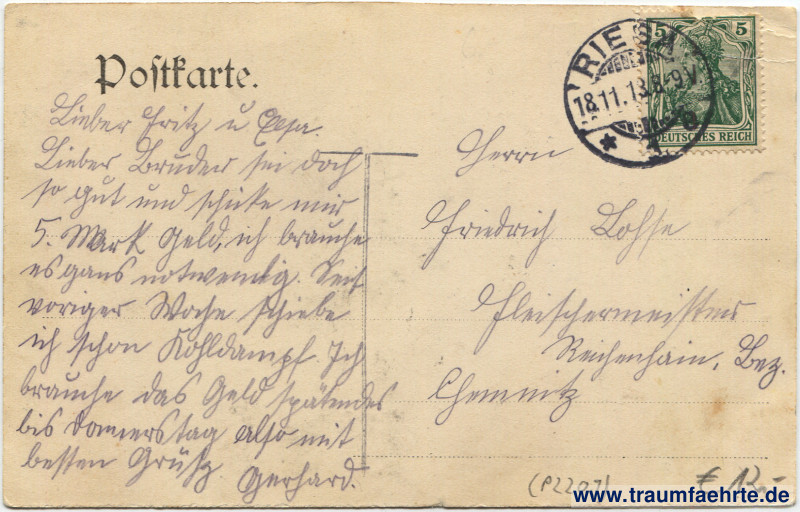 Postkarte.
Lieber Fritz u Elsa.
Lieber Bruder sei doch
so gut und schicke mir
5. Mark Geld, ich brauche
es gans notwendig. Seit
voriger Woche schiebe
ich schon Kohldampf. Ich
brauche das Geld spätendes
bis Donnerstag also mit
besten Grüßz
Gerhard.
RIESA
18.11.13.8-9V.
5
DEUTSCHES REICH
Herrn
Friedrich Lohse
Fleischermeister
Reichenhain, Bez.
Chemnitz
(P2207)
€ 12.-
www.traumfaehrte.de